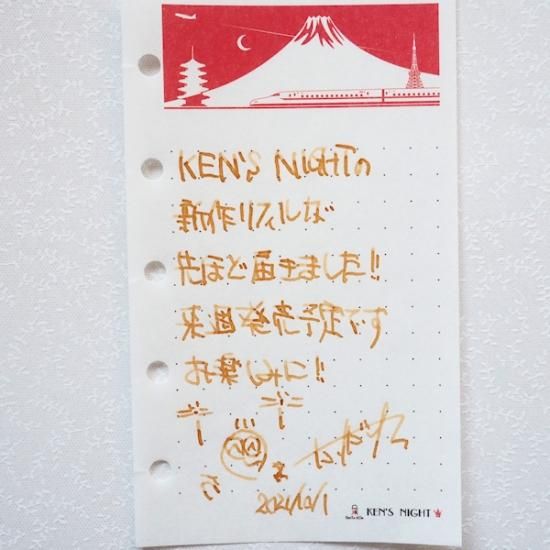 KEN'S NIGHTの
新作リフィルが
先ほど届きました!!
来週発売予定です
お楽しみに!!
2024/10/1
KEN'S NIGHT